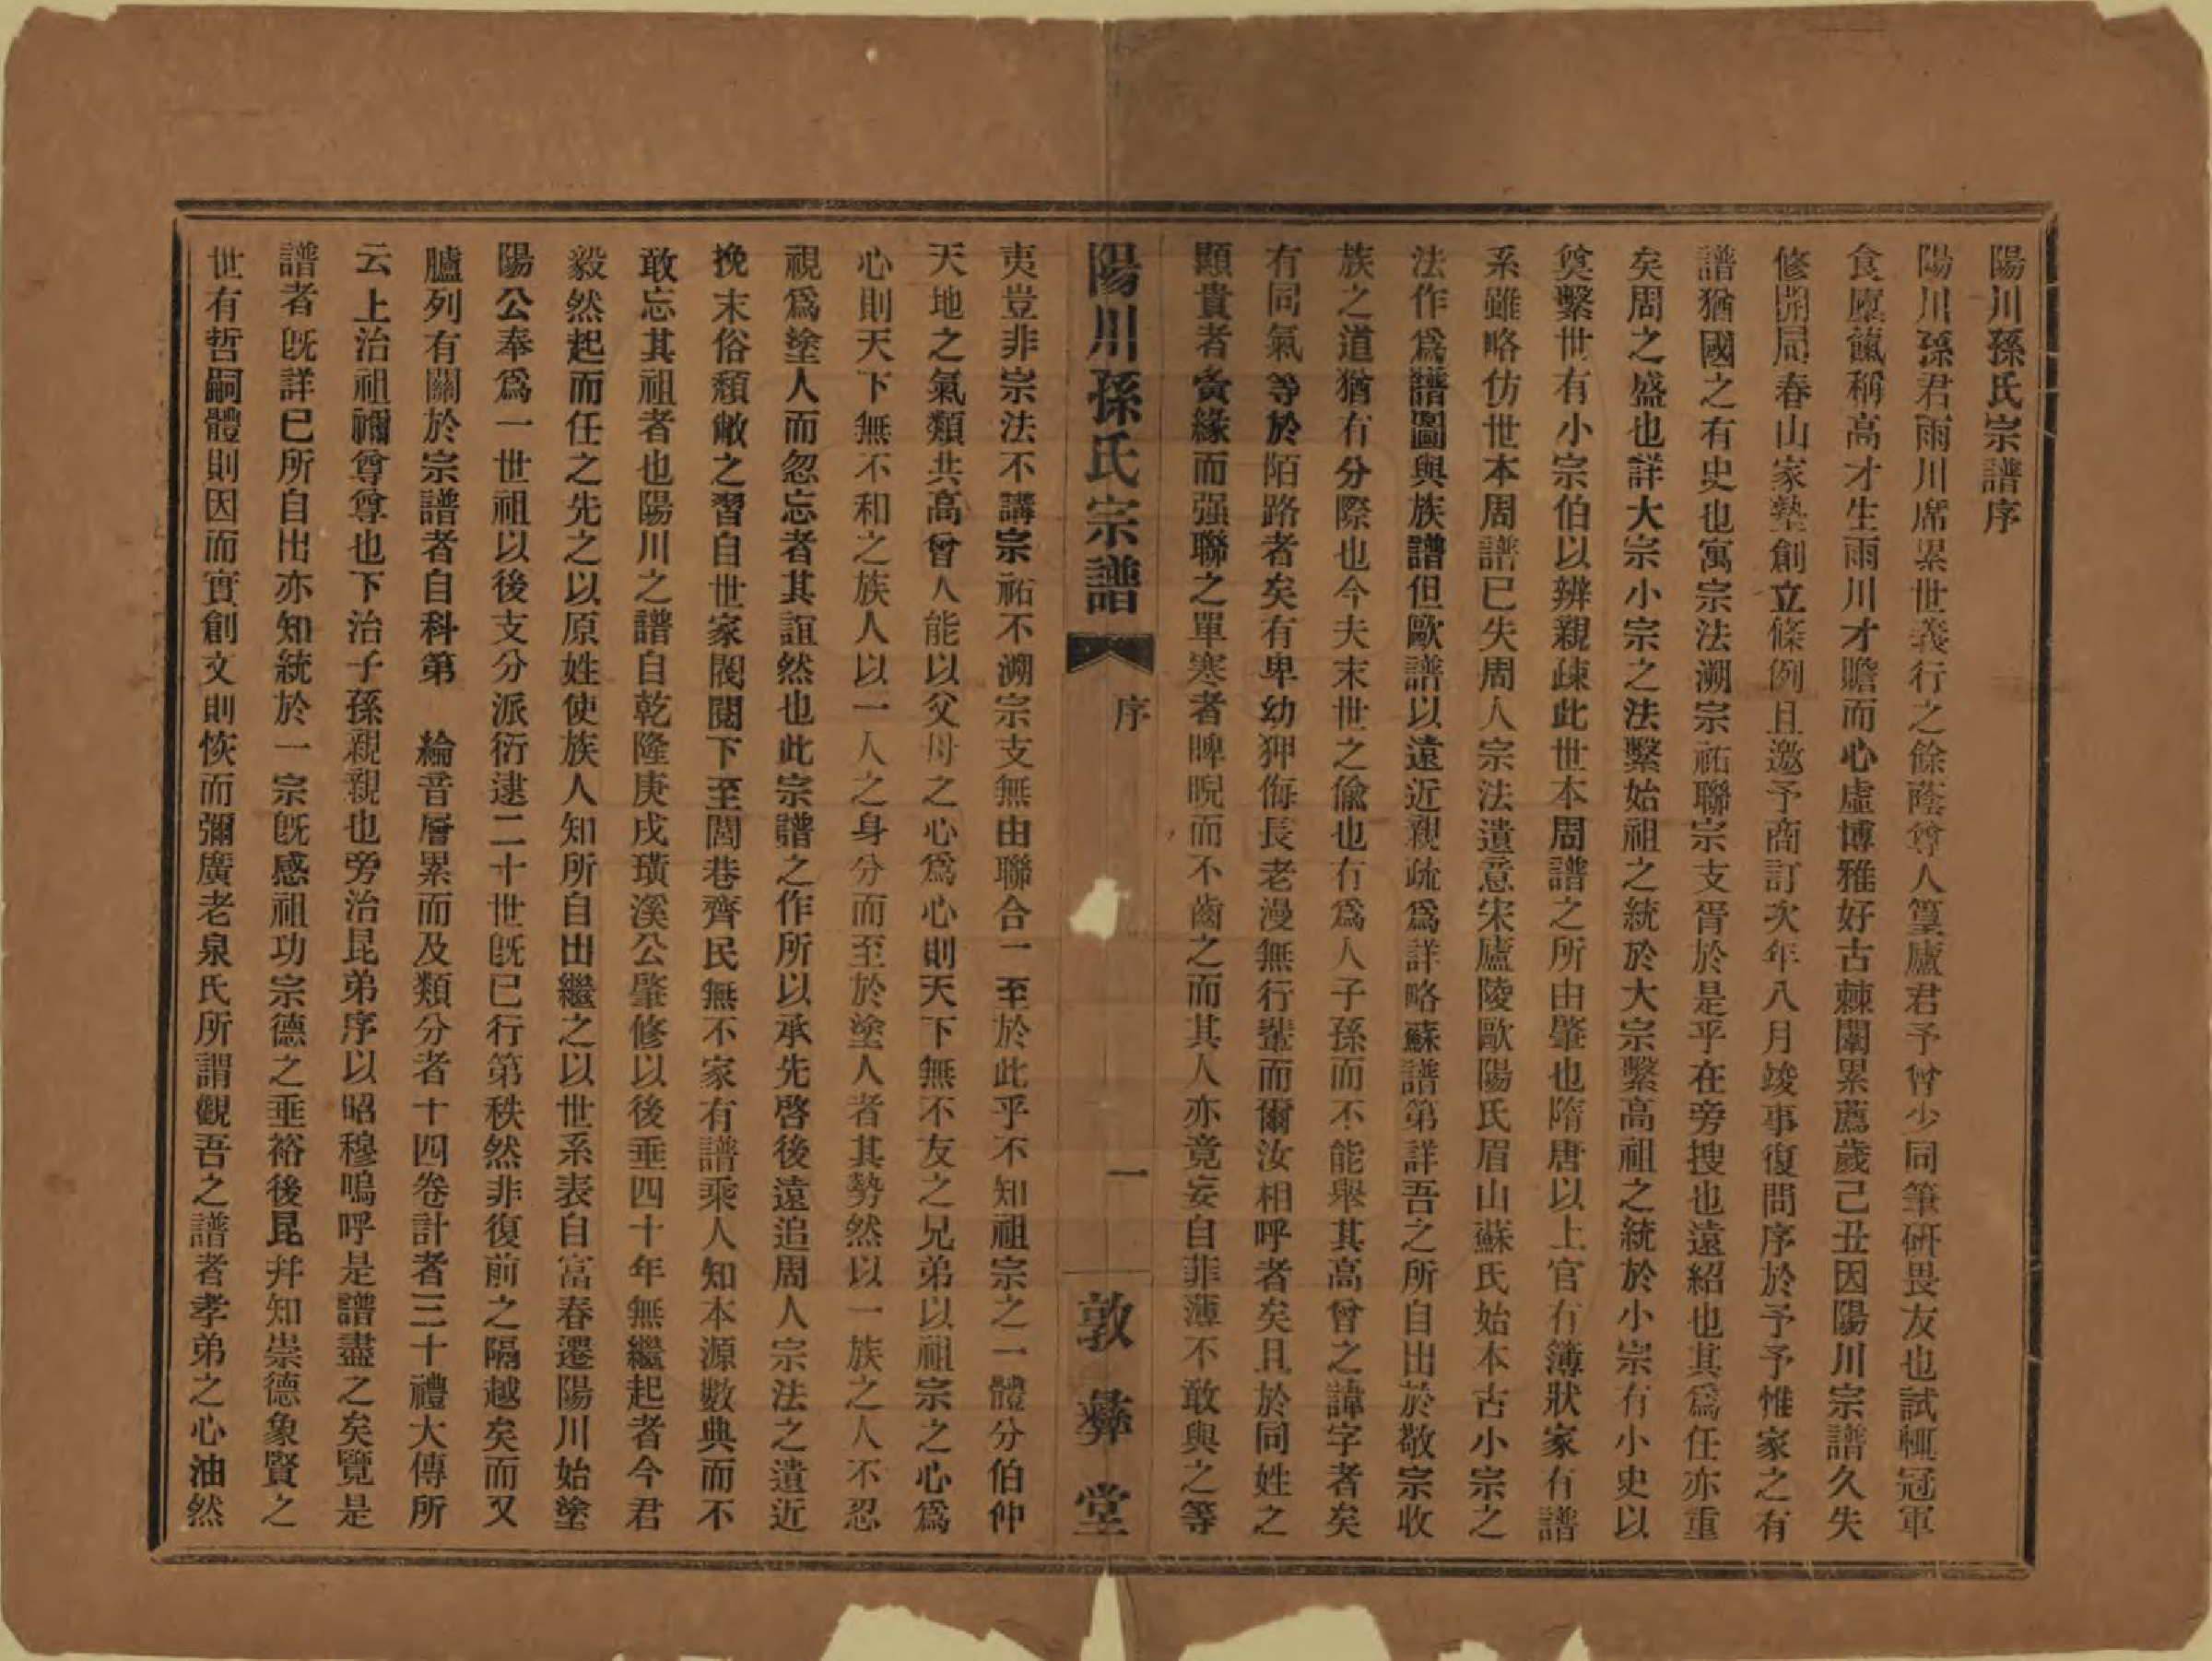 陽川孫氏宗譜序
陽川孫君雨川席累世義行之餘蔭尊人篁廬君予曾少同筆研畏友也試輒冠軍
食廩餼稱高才生雨川才贍而心虛博雅好古棘闈累薦歲己丑因陽川宗譜久失
修開局春山家塾創立條例且邀予商訂次年八月竣事復問序於予予惟家之有
譜猶國之有史也寓宗法溯宗祏聯宗支胥於是乎在旁搜也遠紹也其爲任亦重
矣周之盛也詳大宗小宗之法繫始祖之統於大宗繫高祖之統於小宗有小史以
奠繫世有小宗伯以辨親疎此世本周譜之所由肇也隋唐以上官有簿狀家有譜
系雖略仿世本周譜已失周人宗法遺意宋廬陵歐陽氏眉山蘇氏始本古小宗之
法作爲譜圖與族譜但歐譜以遠近親疏爲詳略蘇譜第詳吾之所自出於敬宗收
族之道猶有分際也今夫末世之偸也有爲人子孫而不能舉其高曾之諱字者矣
有同氣等於陌路者矣有卑幼狎侮長老漫無行輩而爾汝相呼者矣且於同姓之
顯貴者夤緣而强聯之單寒者睥睨而不齒之而其人亦竟妄自菲薄不敢與之等
陽川孫氏宗譜 序 一 敦彝堂
夷豈非宗法不講宗祏不溯宗支無由聯合一至於此乎不知祖宗之一體分伯仲
天地之氣類共高曾人能以父母之心爲心則天下無不友之兄弟以祖宗之心爲
心則天下無不和之族人以一人之身分而至於塗人者其勢然以一族之人不忍
視爲塗人而忽忘者其誼然也此宗譜之作所以承先啓後遠追周人宗法之遺近
挽末俗頹敝之習自世家閥閱下至閭巷齊民無不家有譜乘人知本源數典而不
敢忘其祖者也陽川之譜自乾隆庚戌璜溪公肇修以後垂四十年無繼起者今君
毅然起而任之先之以原姓使族人知所自出繼之以世系表自富春遷陽川始塗
陽公奉爲一世祖以後支分派衍逮二十世旣已行第秩然非復前之隔越矣而又
臚列有關於宗譜者自科第 綸音層累而及類分者十四卷計者三十禮大傳所
云上治祖禰尊尊也下治子孫親親也旁治昆弟序以昭穆嗚呼是譜盡之矣覽是
譜者旣詳已所自出亦知統於一宗旣感祖功宗德之垂裕後昆幷知崇德象賢之
世有哲嗣體則因而實創文則恢而彌廣老泉氏所謂觀吾之譜者孝弟之心油然